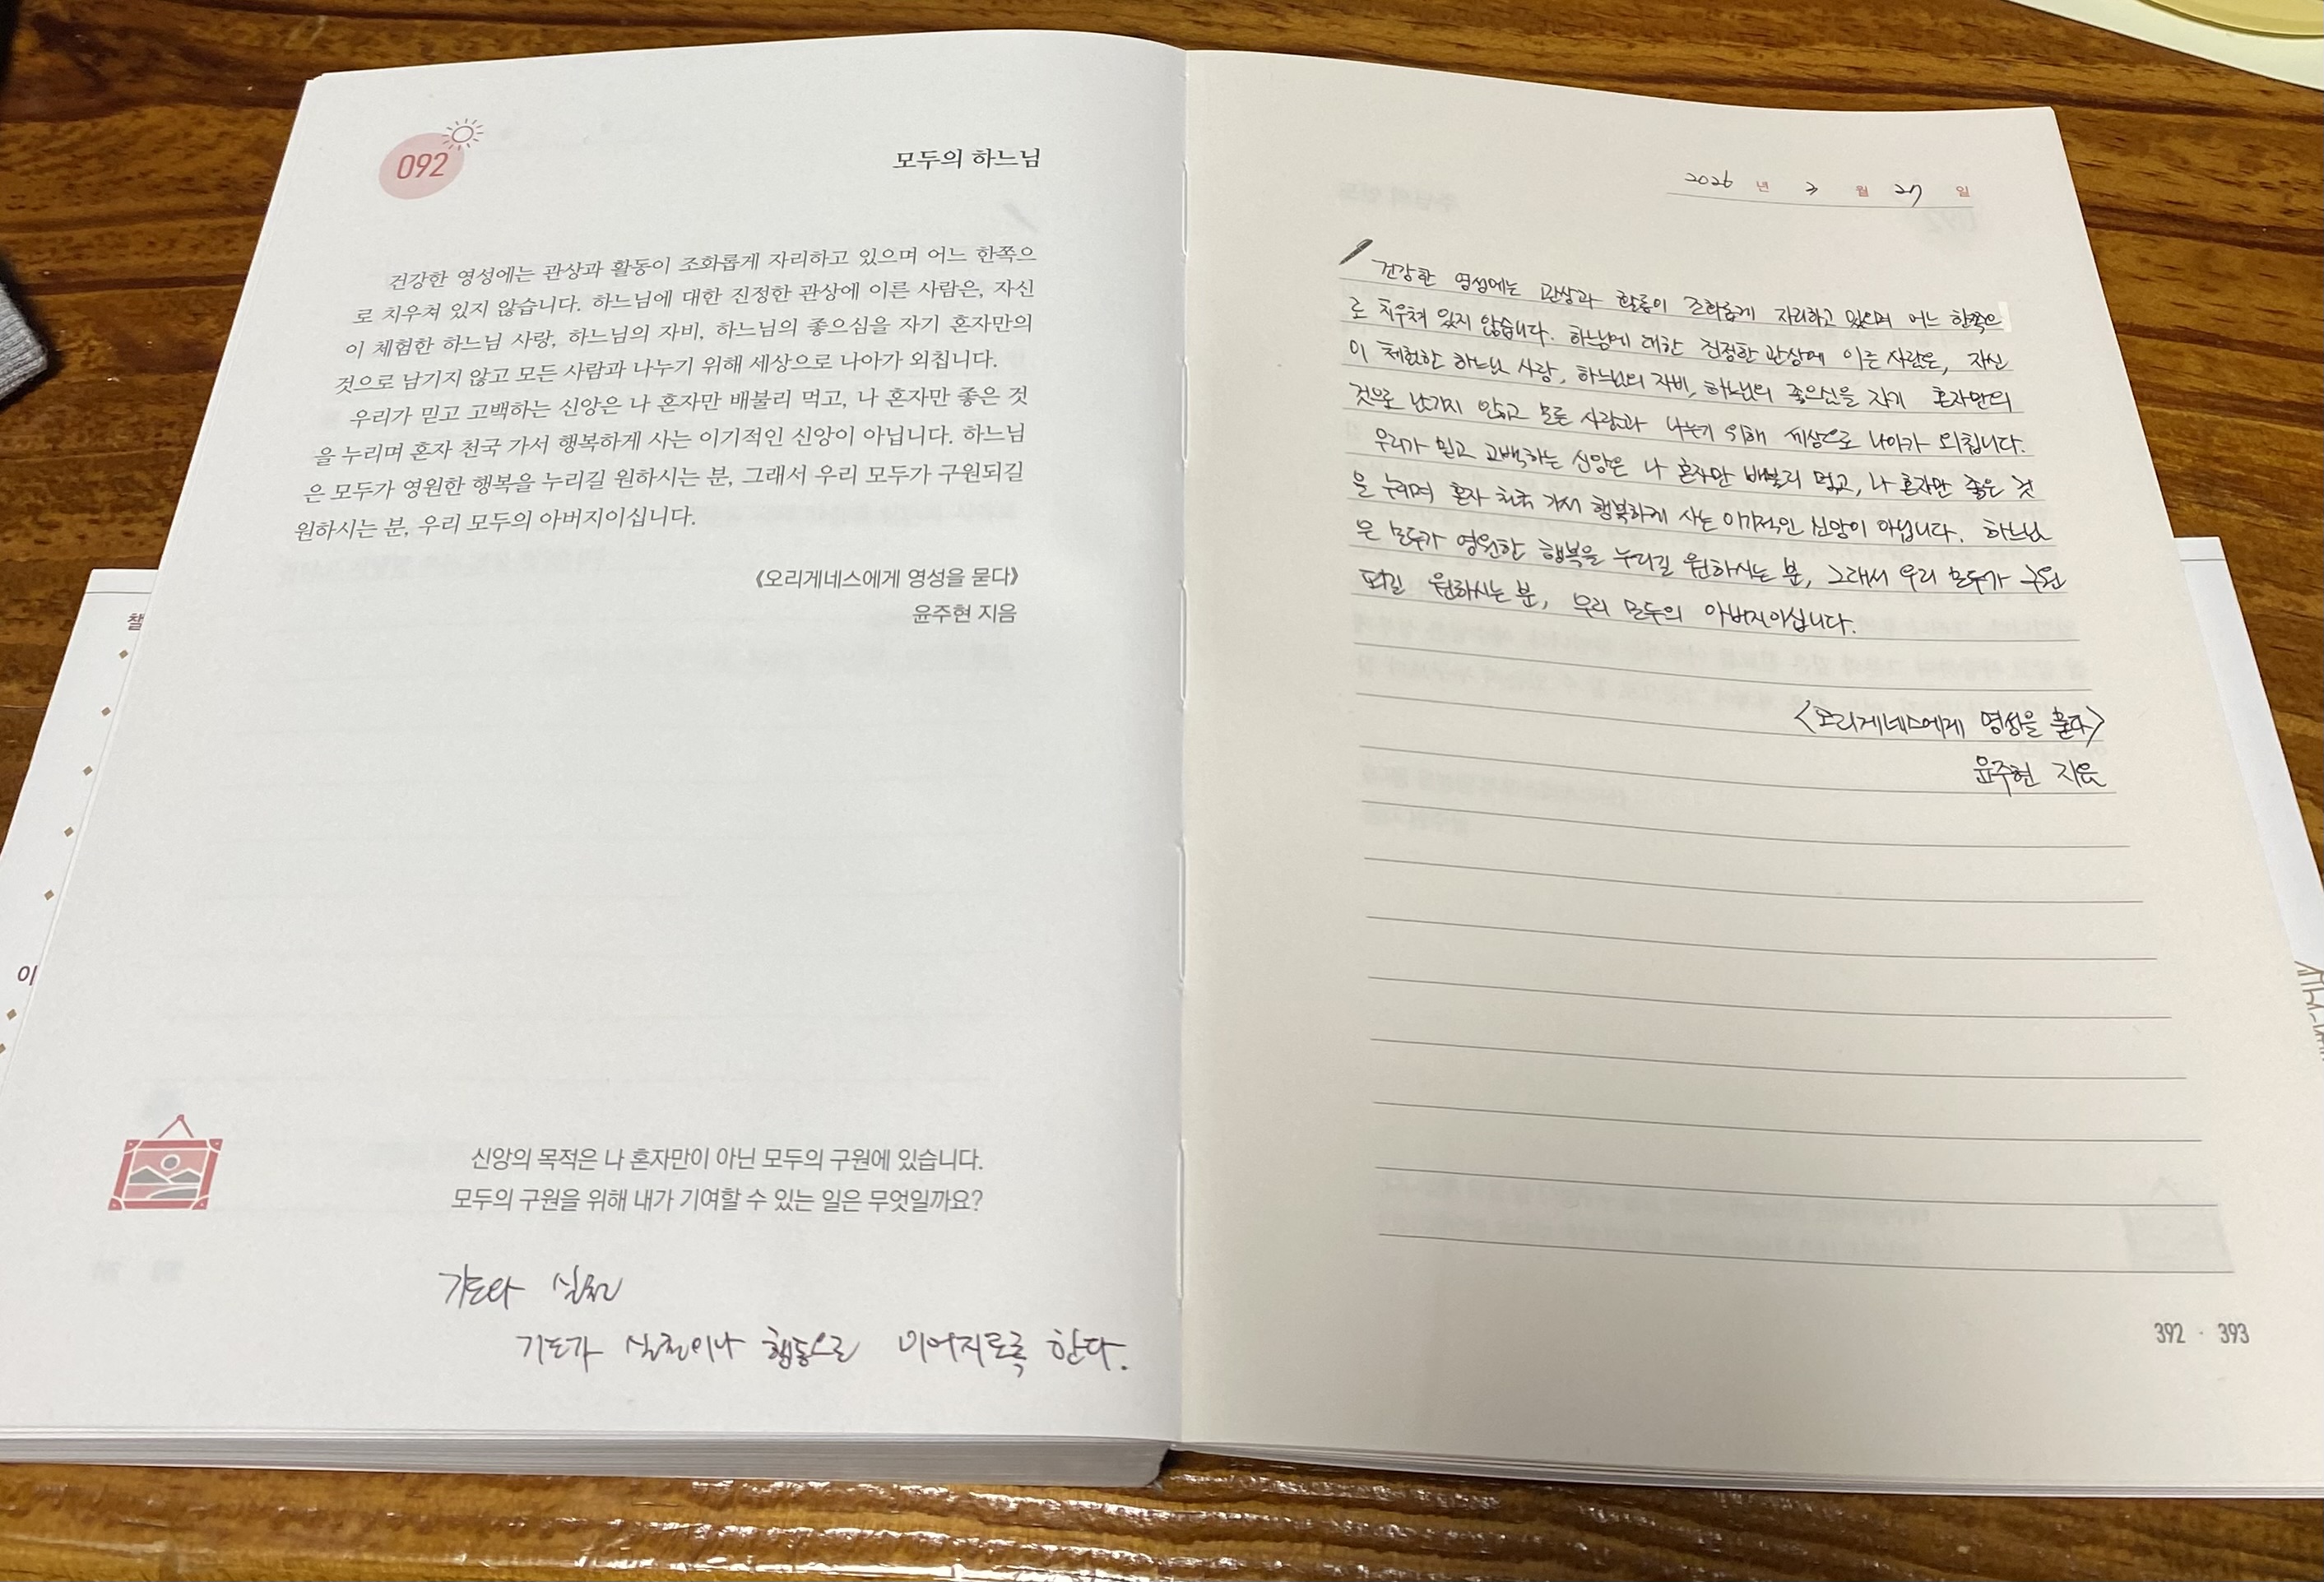 092
모두의 하느님
건강한 영성에는 관상과 활동이 조화롭게 자리하고 있으며 어느 한쪽으
로 치우쳐 있지 않습니다. 하느님에 대한 진정한 관상에 이른 사람은, 자신
이 체험한 하느님 사랑, 하느님의 자비, 하느님의 좋으심을 자기 혼자만의
것으로 남기지 않고 모든 사람과 나누기 위해 세상으로 나아가 외칩니다.
우리가 믿고 고백하는 신앙은 나 혼자만 배불리 먹고, 나 혼자만 좋은 것
을 누리며 혼자 천국 가서 행복하게 사는 이기적인 신앙이 아닙니다. 하느님
은 모두가 영원한 행복을 누리길 원하시는 분, 그래서 우리 모두가 구원되길
원하시는 분, 우리 모두의 아버지이십니다.
《오리게네스에게 영성을 묻다》
윤주현 지음
신앙의 목적은 나 혼자만이 아닌 모두의 구원에 있습니다.
모두의 구원을 위해 내가 기여할 수 있는 일은 무엇일까요?
기도와 실천
기도가 실천이나 행동으로 이어지도록 한다.
2026 년 3 월 27 일
건강한 영성에는 관상과 활동이 조화롭게 자리하고 있으며 어느 한쪽으
로 치우쳐 있지 않습니다. 하느님에 대한 진정한 관상에 이른 사람은, 자신
이 체험한 하느님 사랑, 하느님의 자비, 하느님의 좋으심을 자기 혼자만의
것으로 남기지 않고 모든 사람과 나누기 위해 세상으로 나아가 외칩니다.
우리가 믿고 고백하는 신앙은 나 혼자만 배불리 먹고, 나 혼자만 좋은 것
을 누리며 혼자 천국 가서 행복하게 사는 이기적인 신앙이 아닙니다. 하느님
은 모두가 영원한 행복을 누리길 원하시는 분, 그래서 우리 모두가 구원
되길 원하시는 분, 우리 모두의 아버지이십니다.
<오리게네스에게 영성을 묻다>
윤주현 지음
392 · 393